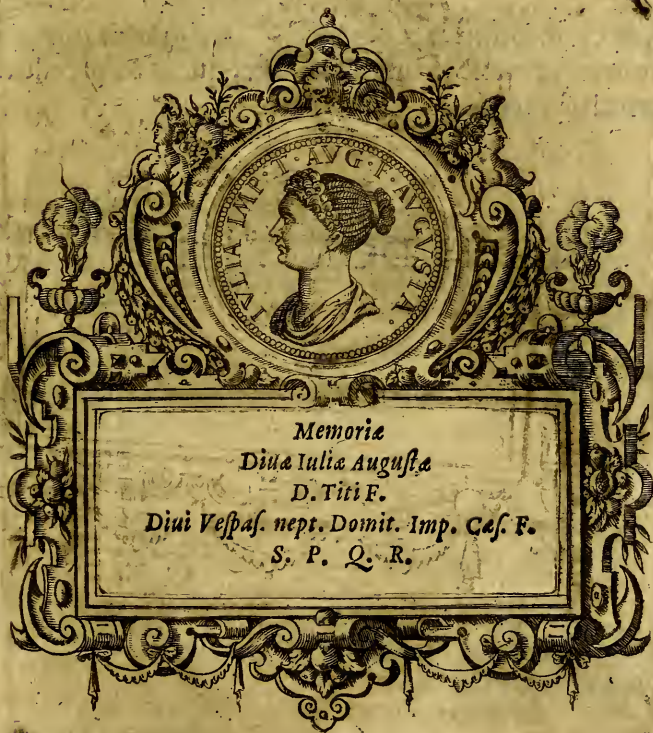 IVLIA·IMP·T·AVG·F·AVGVSTA·
Memoriæ
Diuæ Iuliæ Auguſtæ
D. Titi F.
Diui Veſpaſ. nept. Domit. Imp. Cæſ. F.
S. P. Q. R.